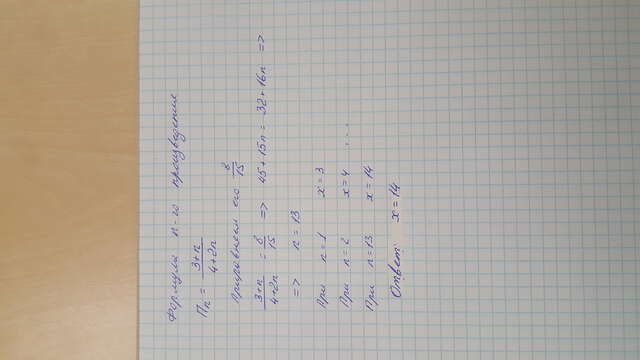 Формула n-го произведения
Пn = 3+n / 4+2n
Приравняем его 8/15
3+n / 4+2n = 8/15 => 45+15n = 32+16n =>
=> n = 13
При n=1 x=3
При n=2 x=4 ...
При n=13 x=14
Ответ: x=14